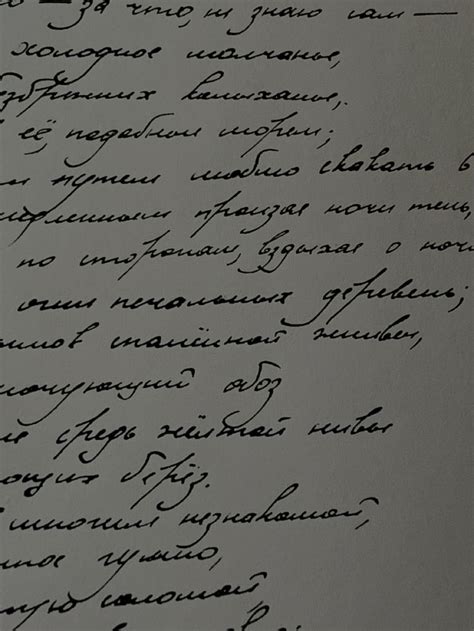 о — за что, не знаю сам —
холодное молчанье,
езбрежных колыханье,
её, подобные морям;
м путем люблю скакать в
медленным пронзая ночи тень,
по сторонам, вздыхая о ноч
огни печальных деревень;
ымок спалённой жнивы,
ночующий обоз
ме средь жёлтой нивы
ющих берёз.
многим незнакомой,
ное гумно,
тую соломой